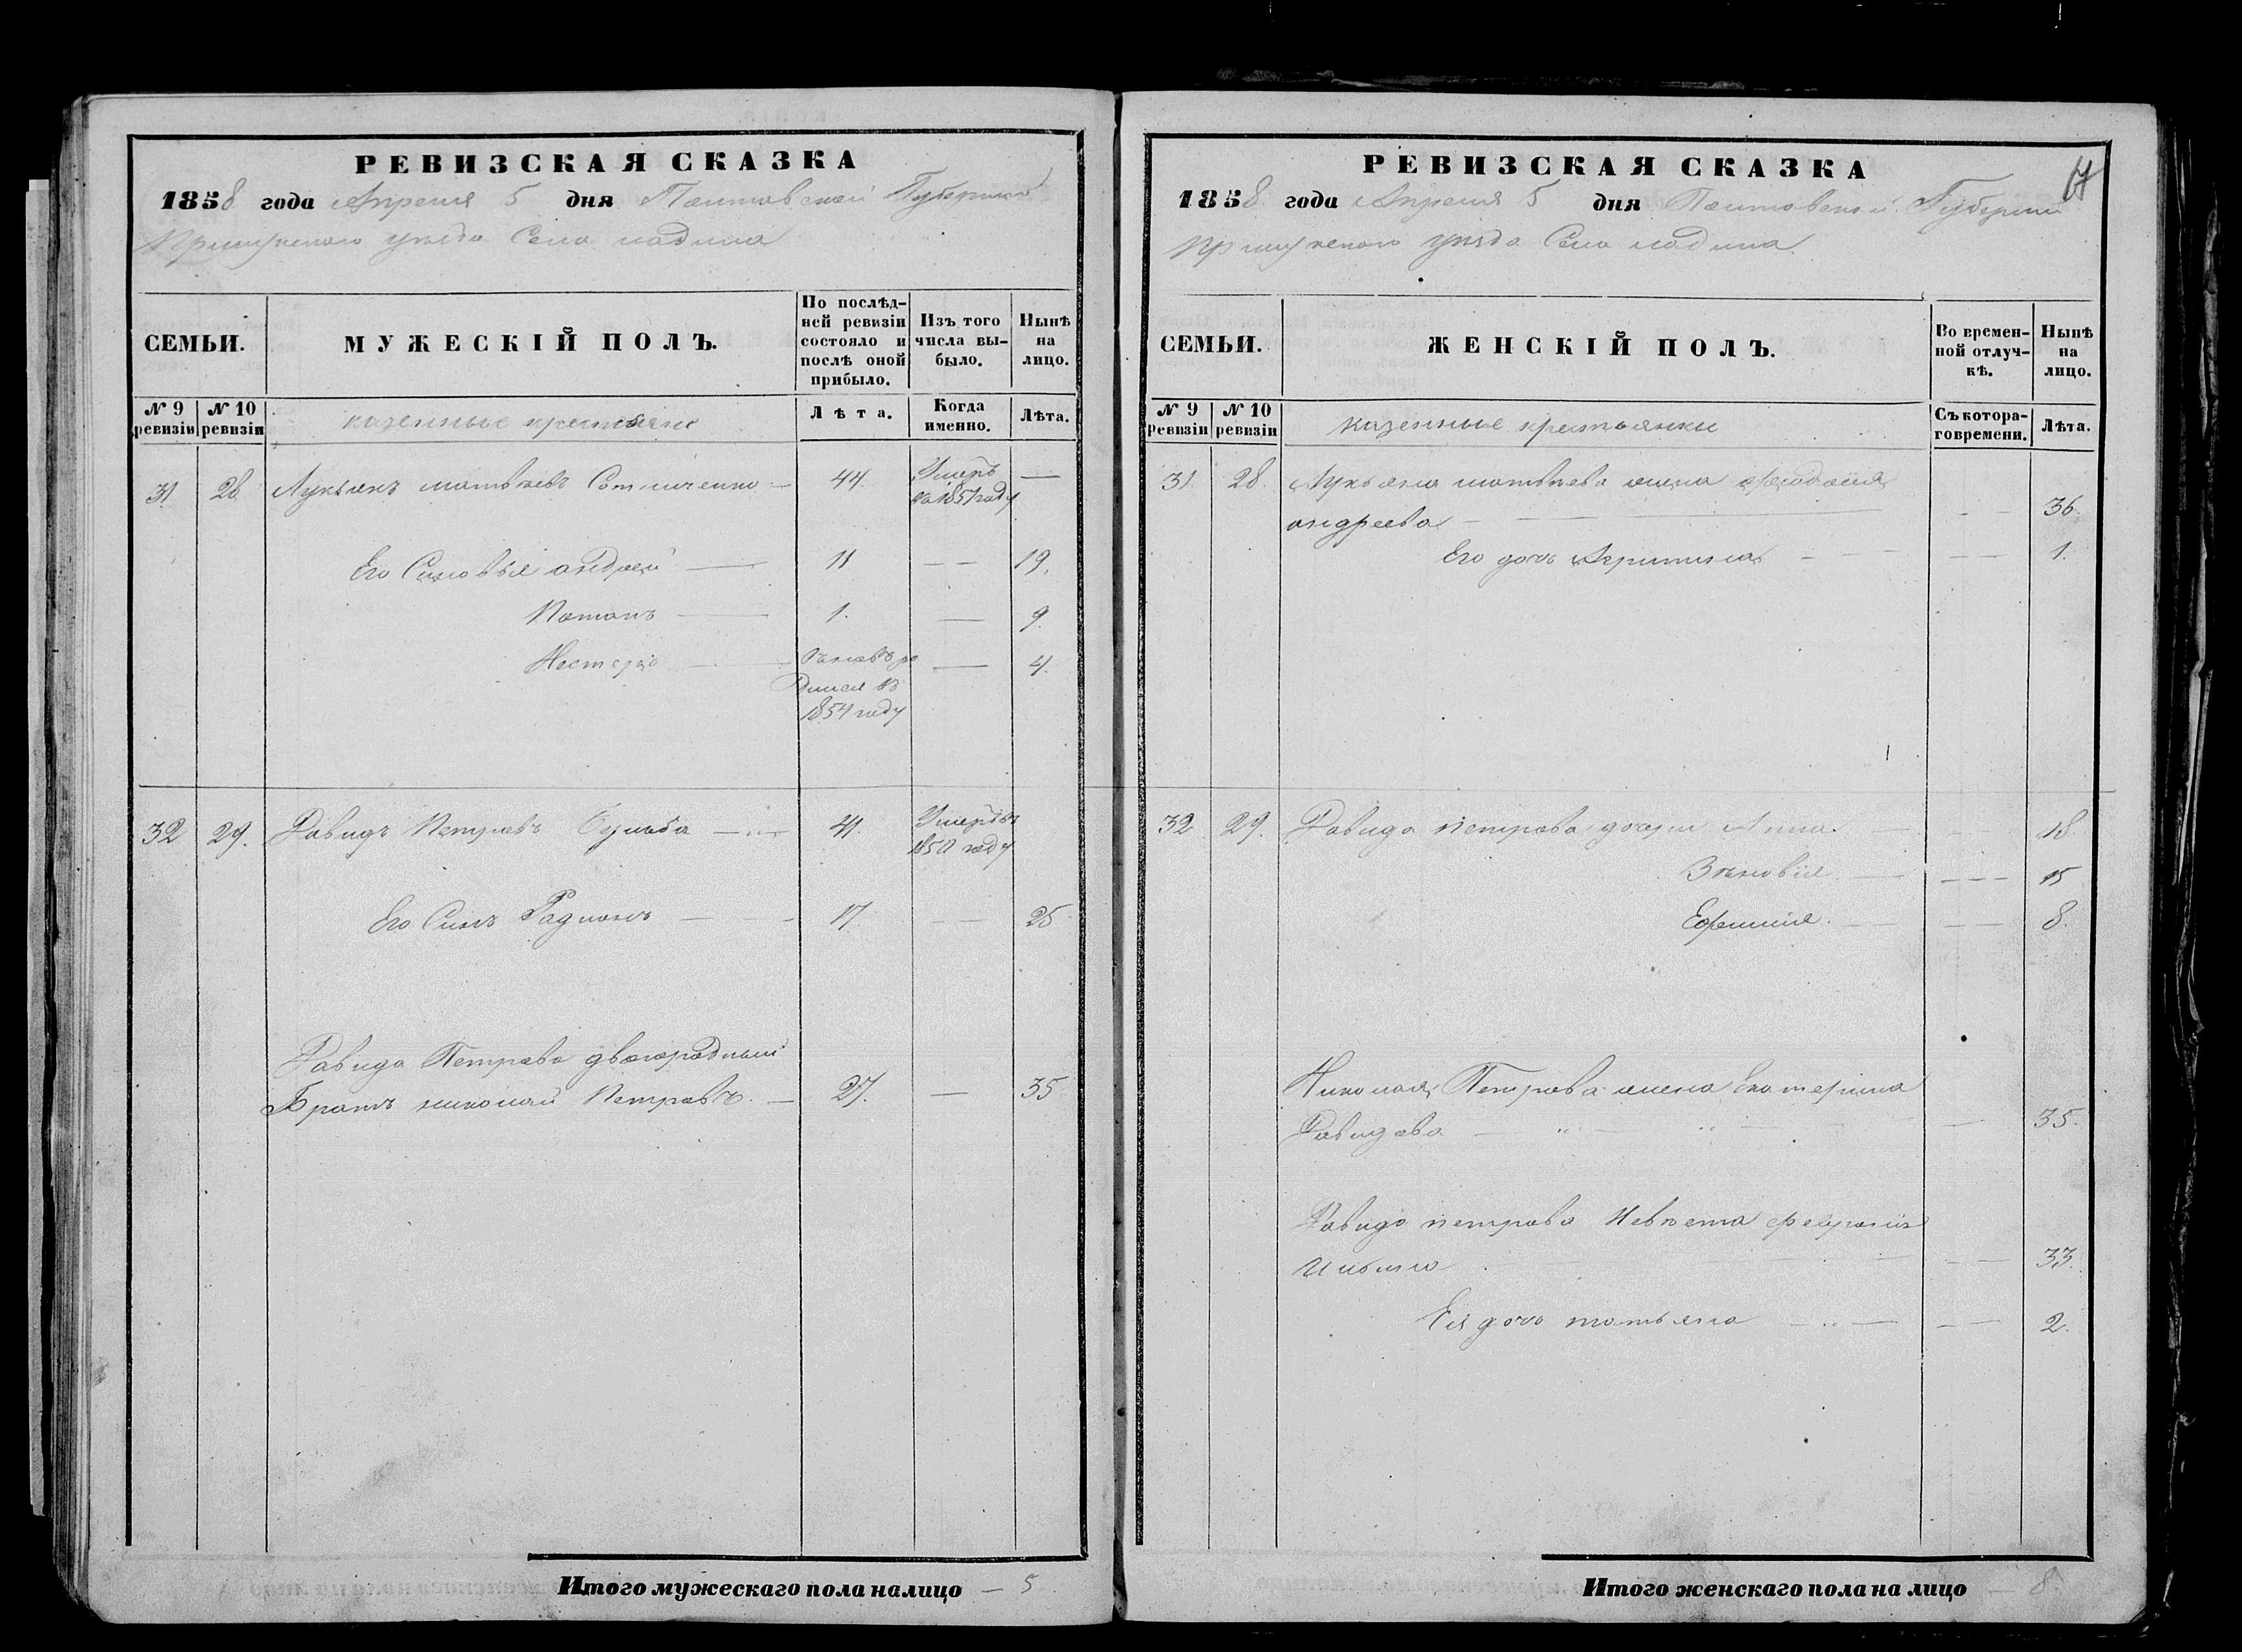 РЕВИЗСКАЯ СКАЗКА
1858 года Апреля 5 дня Полтавской Губернии
Прилуцкого уезда Села Ладина
СЕМЬИ.
МУЖЕСКІЙ ПОЛЪ.
По послѣд-
ней ревизіи
состояло и
послѣ оной
прибыло.
Изъ того
числа вы-
было.
Нынѣ
на
лицо.
№ 9
ревизіи
№ 10
ревизіи
казенные крестьяне
Лѣта.
Когда
именно.
Лѣта.
31 28 Лукьянъ Матвѣевъ — 44 Умеръ —
1857 году
Его Сыновья Андрей — 11 — — 19.
Потапъ — 1. — 9.
Несторъ — ро — 4.
дился въ
1854 году
32 29. Давидъ Петровъ — 41. Умеръ въ
1850 году
Его Сынъ Радионъ — 17 — — 25
Давида Петрова двоюродный
Братъ Николай Петровъ. — 27. — 35
Итого мужескаго пола на лицо — 5
РЕВИЗСКАЯ СКАЗКА
17
1858 года Апреля 5 дня Полтавской Губернии
Прилуцкого уезда Села Ладина
СЕМЬИ.
ЖЕНСКІЙ ПОЛЪ.
Во времен-
ной отлуч-
кѣ.
Нынѣ
на
лицо.
№ 9
ревизіи
№ 10
ревизіи
казенные крестьянки
Съ котора-
го времени.
Лѣта.
31. 28. Лукьяна Матвѣева жена
Андреева — — — 36.
Его дочь — — — 1.
32 29. Давида Петрова дочери Анна. — 18.
Зѣновія — — — 15
Ефимия. — — — 8.
Николая Петрова жена Екатерина
Давидова — — 35.
Давида Петрова Невѣста
— — 33.
Ея дочь Татьяна — — — 2.
Итого женскаго пола на лицо — 8.